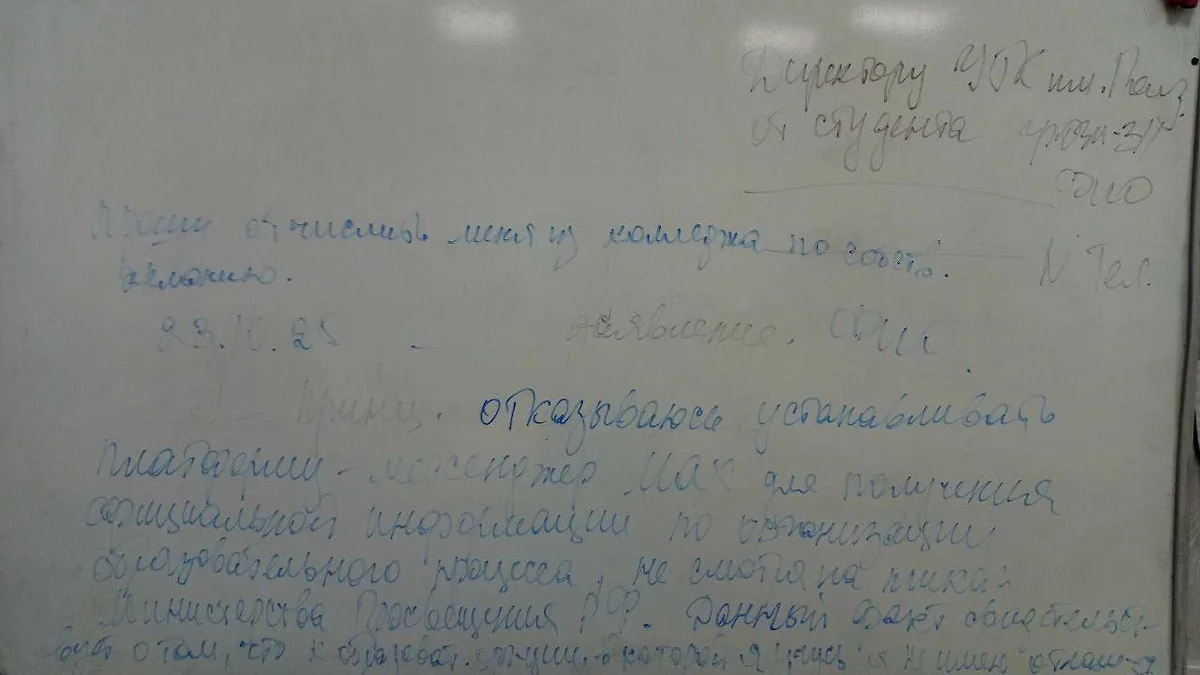 Директору УГК им. Полз.
от студента гр.
ФИО
Прошу отчислить меня из колледжа по собств.
желанию.
N тел.
23.10.25
заявление.
Я принц. отказываюсь устанавливать
платформу - мессенджер МАХ для получения
официальной информации по организации
образовательного процесса, не смотря на приказ
Министерства Просвещения РФ. Данный факт свидетельст-
вует о том, что к образоват. в которой я учусь я не имею